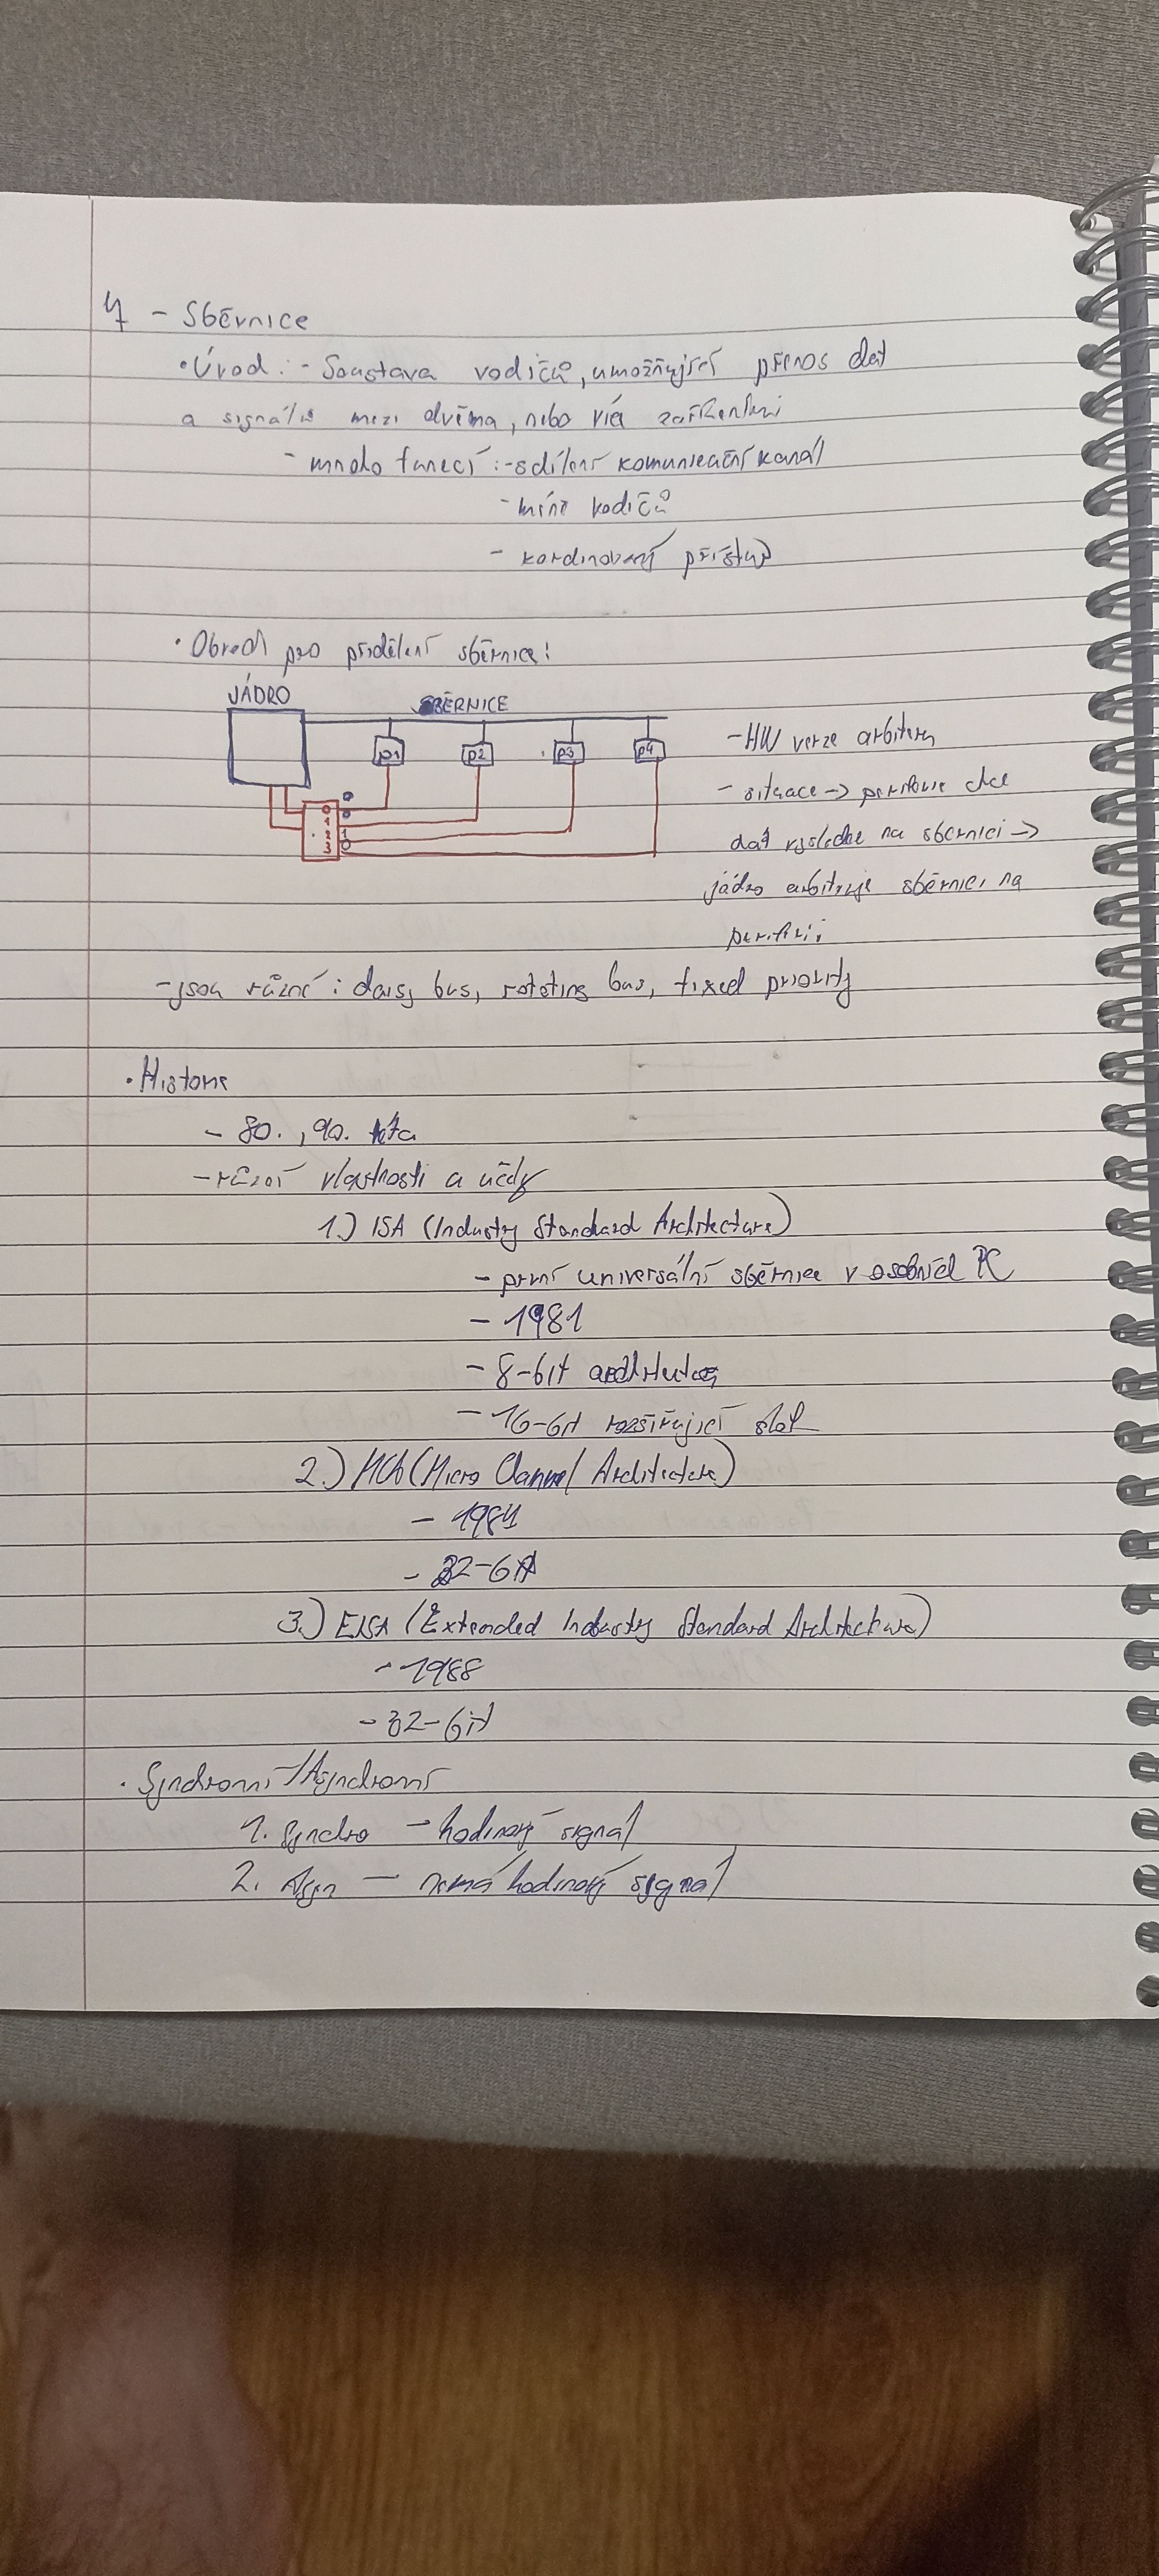 4 - Sběrnice
• Úvod: - Soustava vodičů, umožňující přenos dat
a signálů mezi dvěma, nebo více zařízeními
- mnoho funkcí: - sdílení komunikační kanál
- míně vodičů
- kordinovaný přístup
• Obvod pro přidělení sběrnice:
JÁDRO SBĚRNICE
P1 P2 P3 P4
0
1
2
3
- HW verze arbitru
- situace -> periferie chce
dat výsledke na sběrnici ->
jádro arbitruje sběrnici na
periferii
- jsou různé: daisy bus, rotating bus, fixed priority
• Historie
- 80., 90. léta
- různí vlastnosti a účely
1.) ISA (Industry Standard Architecture)
- první universální sběrnice v osobních PC
- 1981
- 8-bit architektura
- 16-bit rozšiřující slot
2.) MCA (Micro Channel Architecture)
- 32-bit
3.) EISA (Extended Industry Standard Architecture)
- 1988
- 32-bit
• Synchronní/Asynchronní
1. Synchro - hodinový signál
2. Asyn - nemá hodinový signál